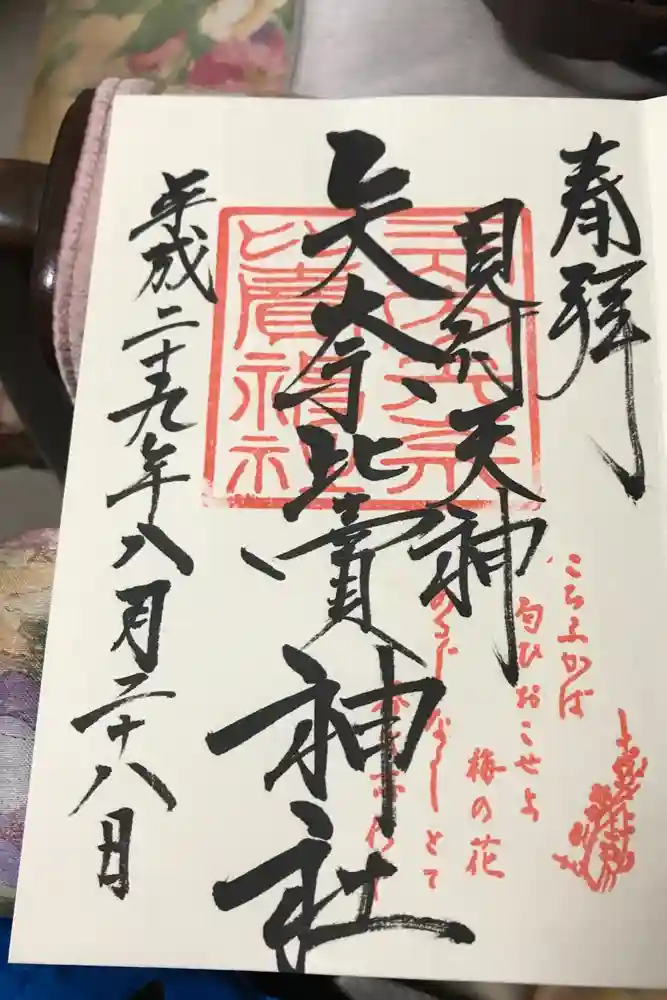 奉拝
見付天神
矢奈比賣神社
平成二十九年八月二十八日
こちふかば
匂ひおこせよ
梅の花
あるじなしとて